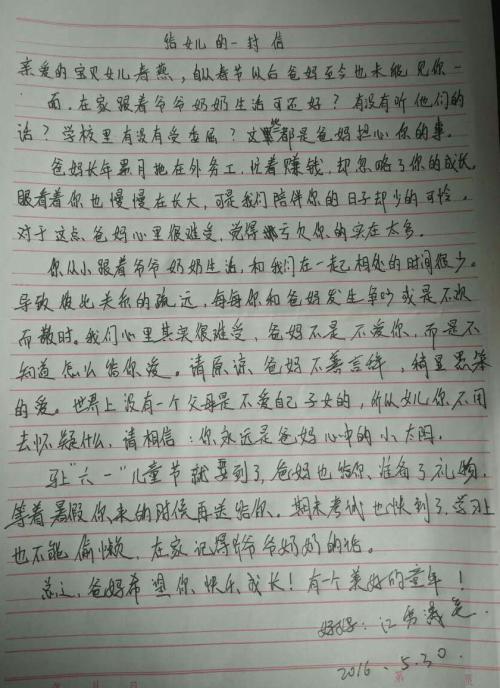 给女儿的一封信
亲爱的宝贝女儿春燕，自从春节以后爸妈至今也未能见你一
面，在家跟着爷爷奶奶生活可还好？有没有听他们的
话？学校里有没有受委屈？这些都是爸妈担心你的事。
爸妈长年累月地在外务工，忙着赚钱，却忽略了你的成长
眼看着你也慢慢在长大，可是我们陪伴你的日子却少的可怜。
对于这点，爸妈心里很难受，觉得亏欠你的实在太多。
你从小跟着爷爷奶奶生活，和我们在一起相处的时间很少。
导致彼此关系的疏远，每每你和爸妈发生争吵或是不欢
而散时。我们心里其实很难受，爸妈不是不爱你，而是不
知道怎么给你爱。请原谅，爸妈不善言辞，
的爱。世界上没有一个父母是不爱自己子女的，所以女儿你不用
去怀疑什么，请相信：你永远是爸妈心中的小太阳。
马上"六一"儿童节就要到了，爸妈也给你准备了礼物，
等着暑假你来的时候再送给你。期末考试也快到了，学习上
也不能偷懒，在家记得听爷爷奶奶的话。
总之，爸妈希望你快乐成长！有一个美好的童年！
2016.5.30